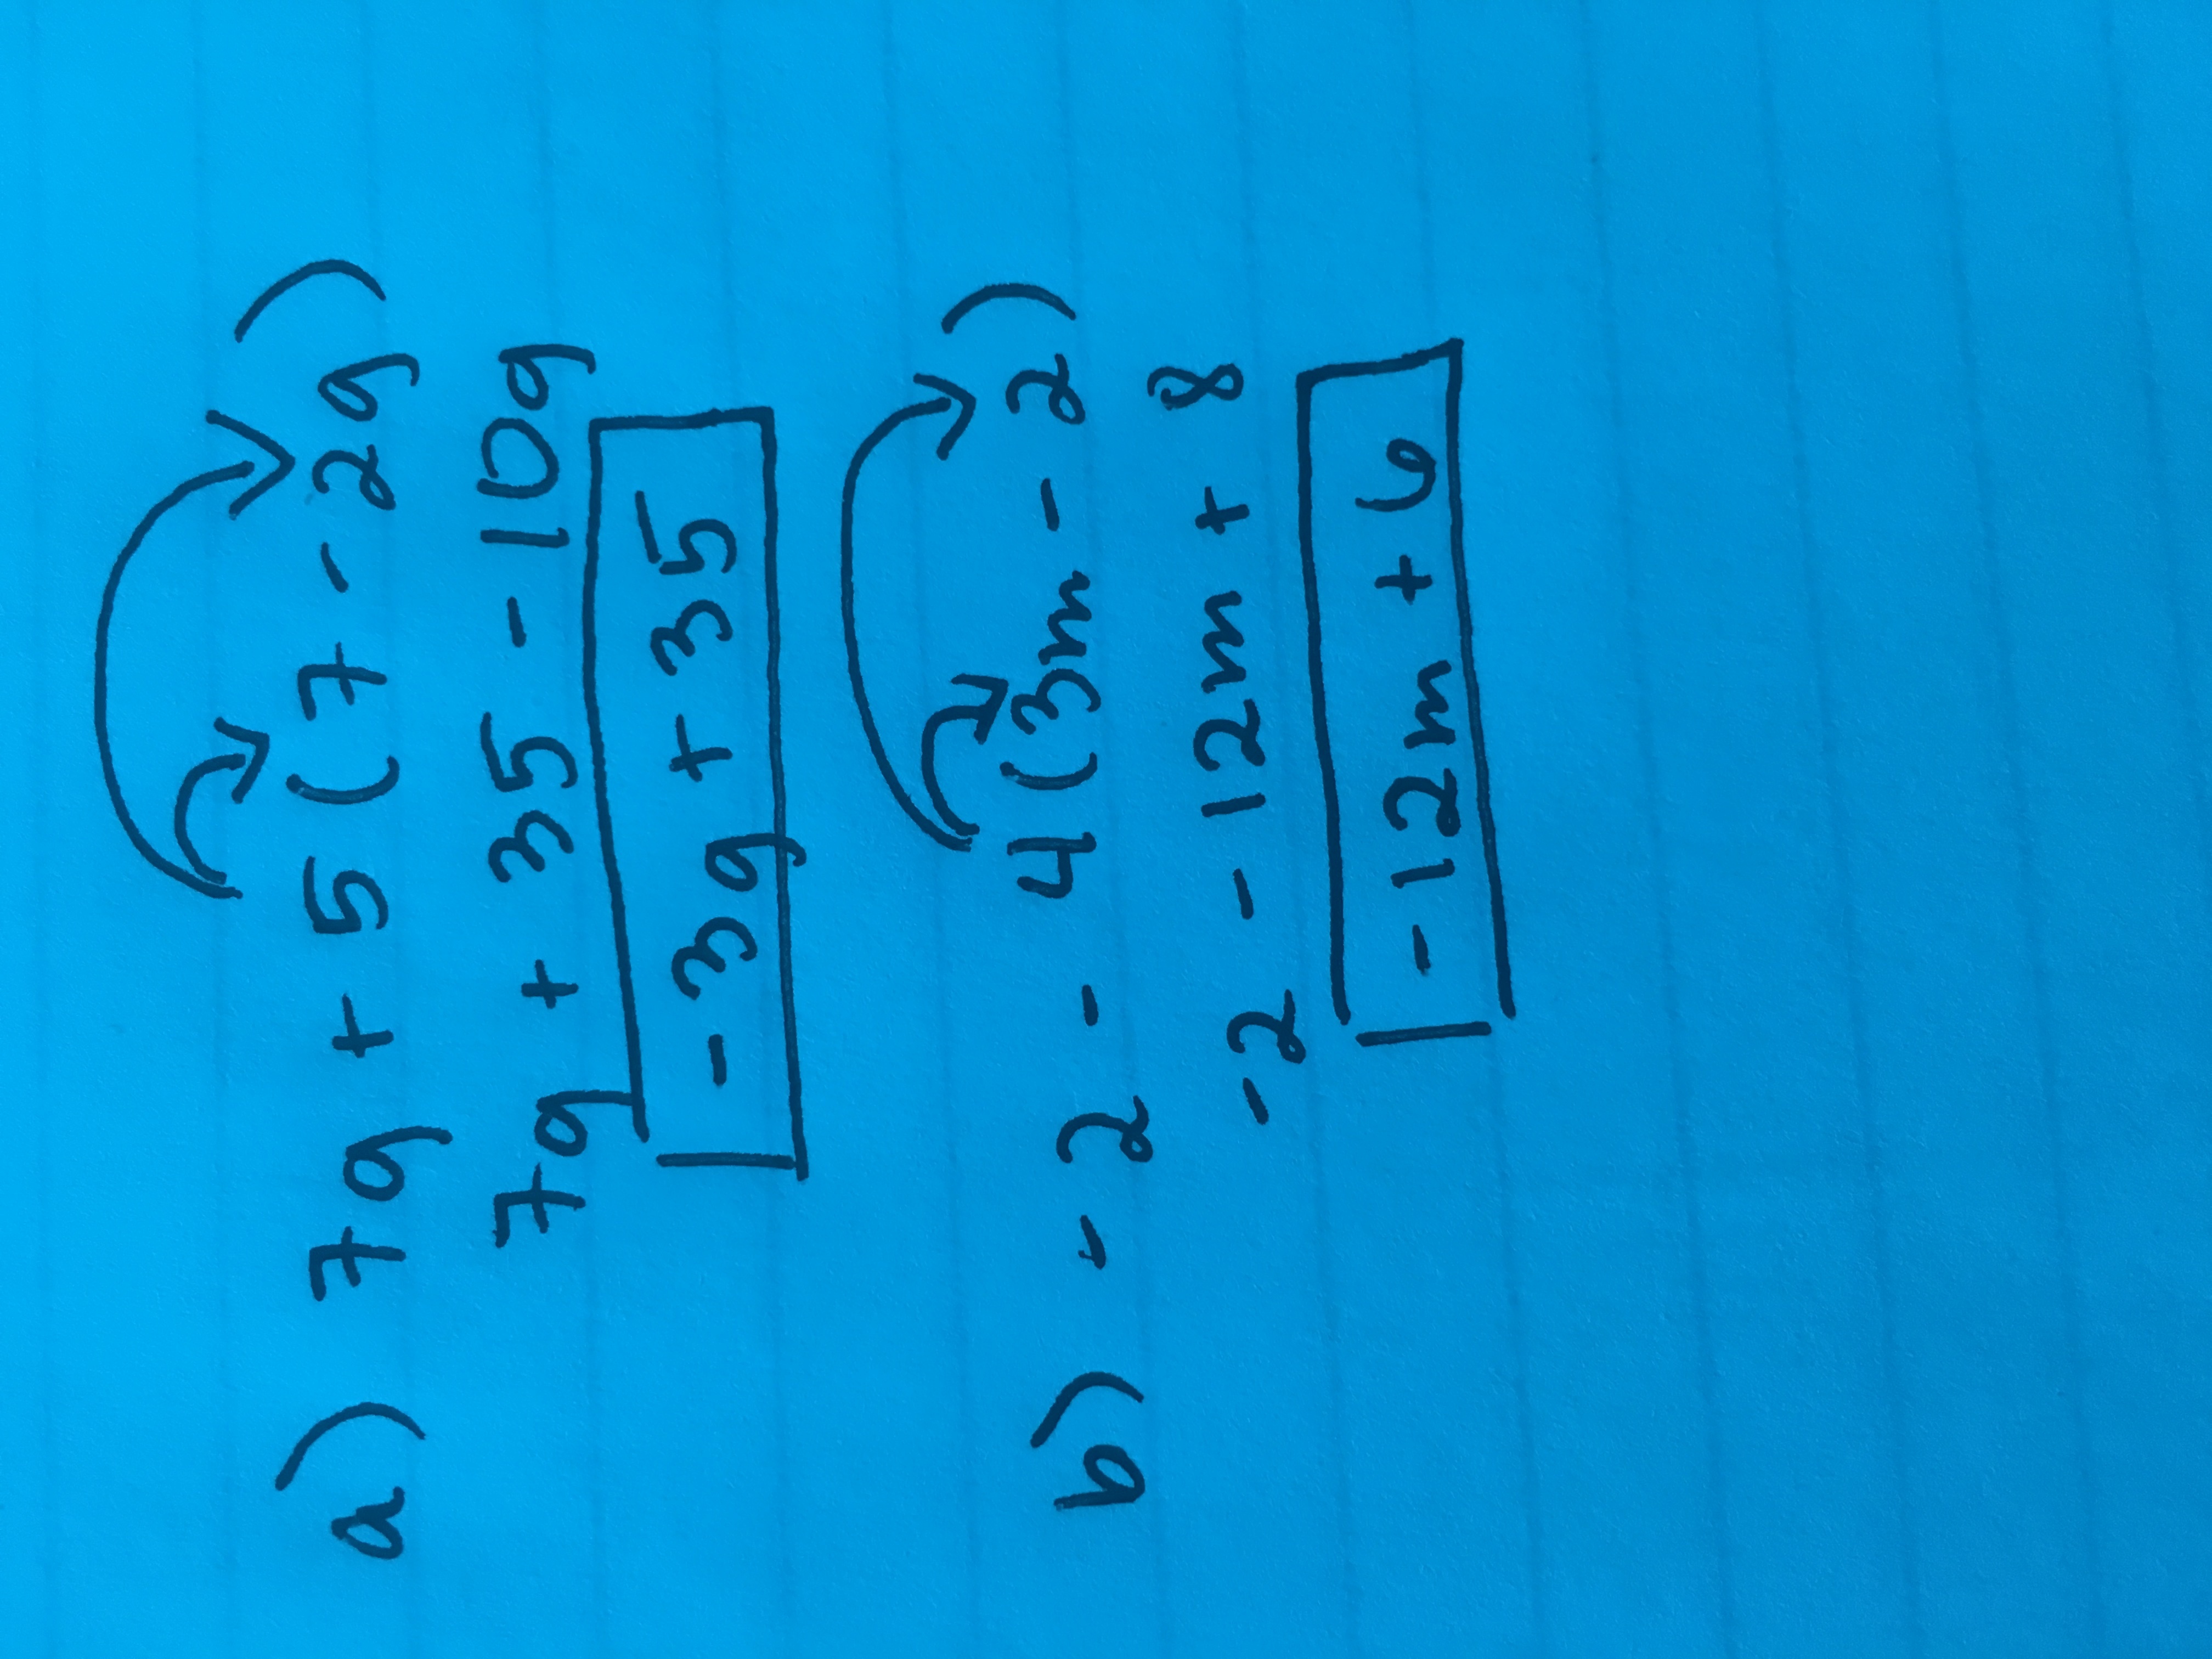 a) 7g + 5(7 - 2g)
7g + 35 - 10g
- 3g + 35
b) - 2 - 4(3m - 2)
- 2 - 12m + 8
- 12m + 6